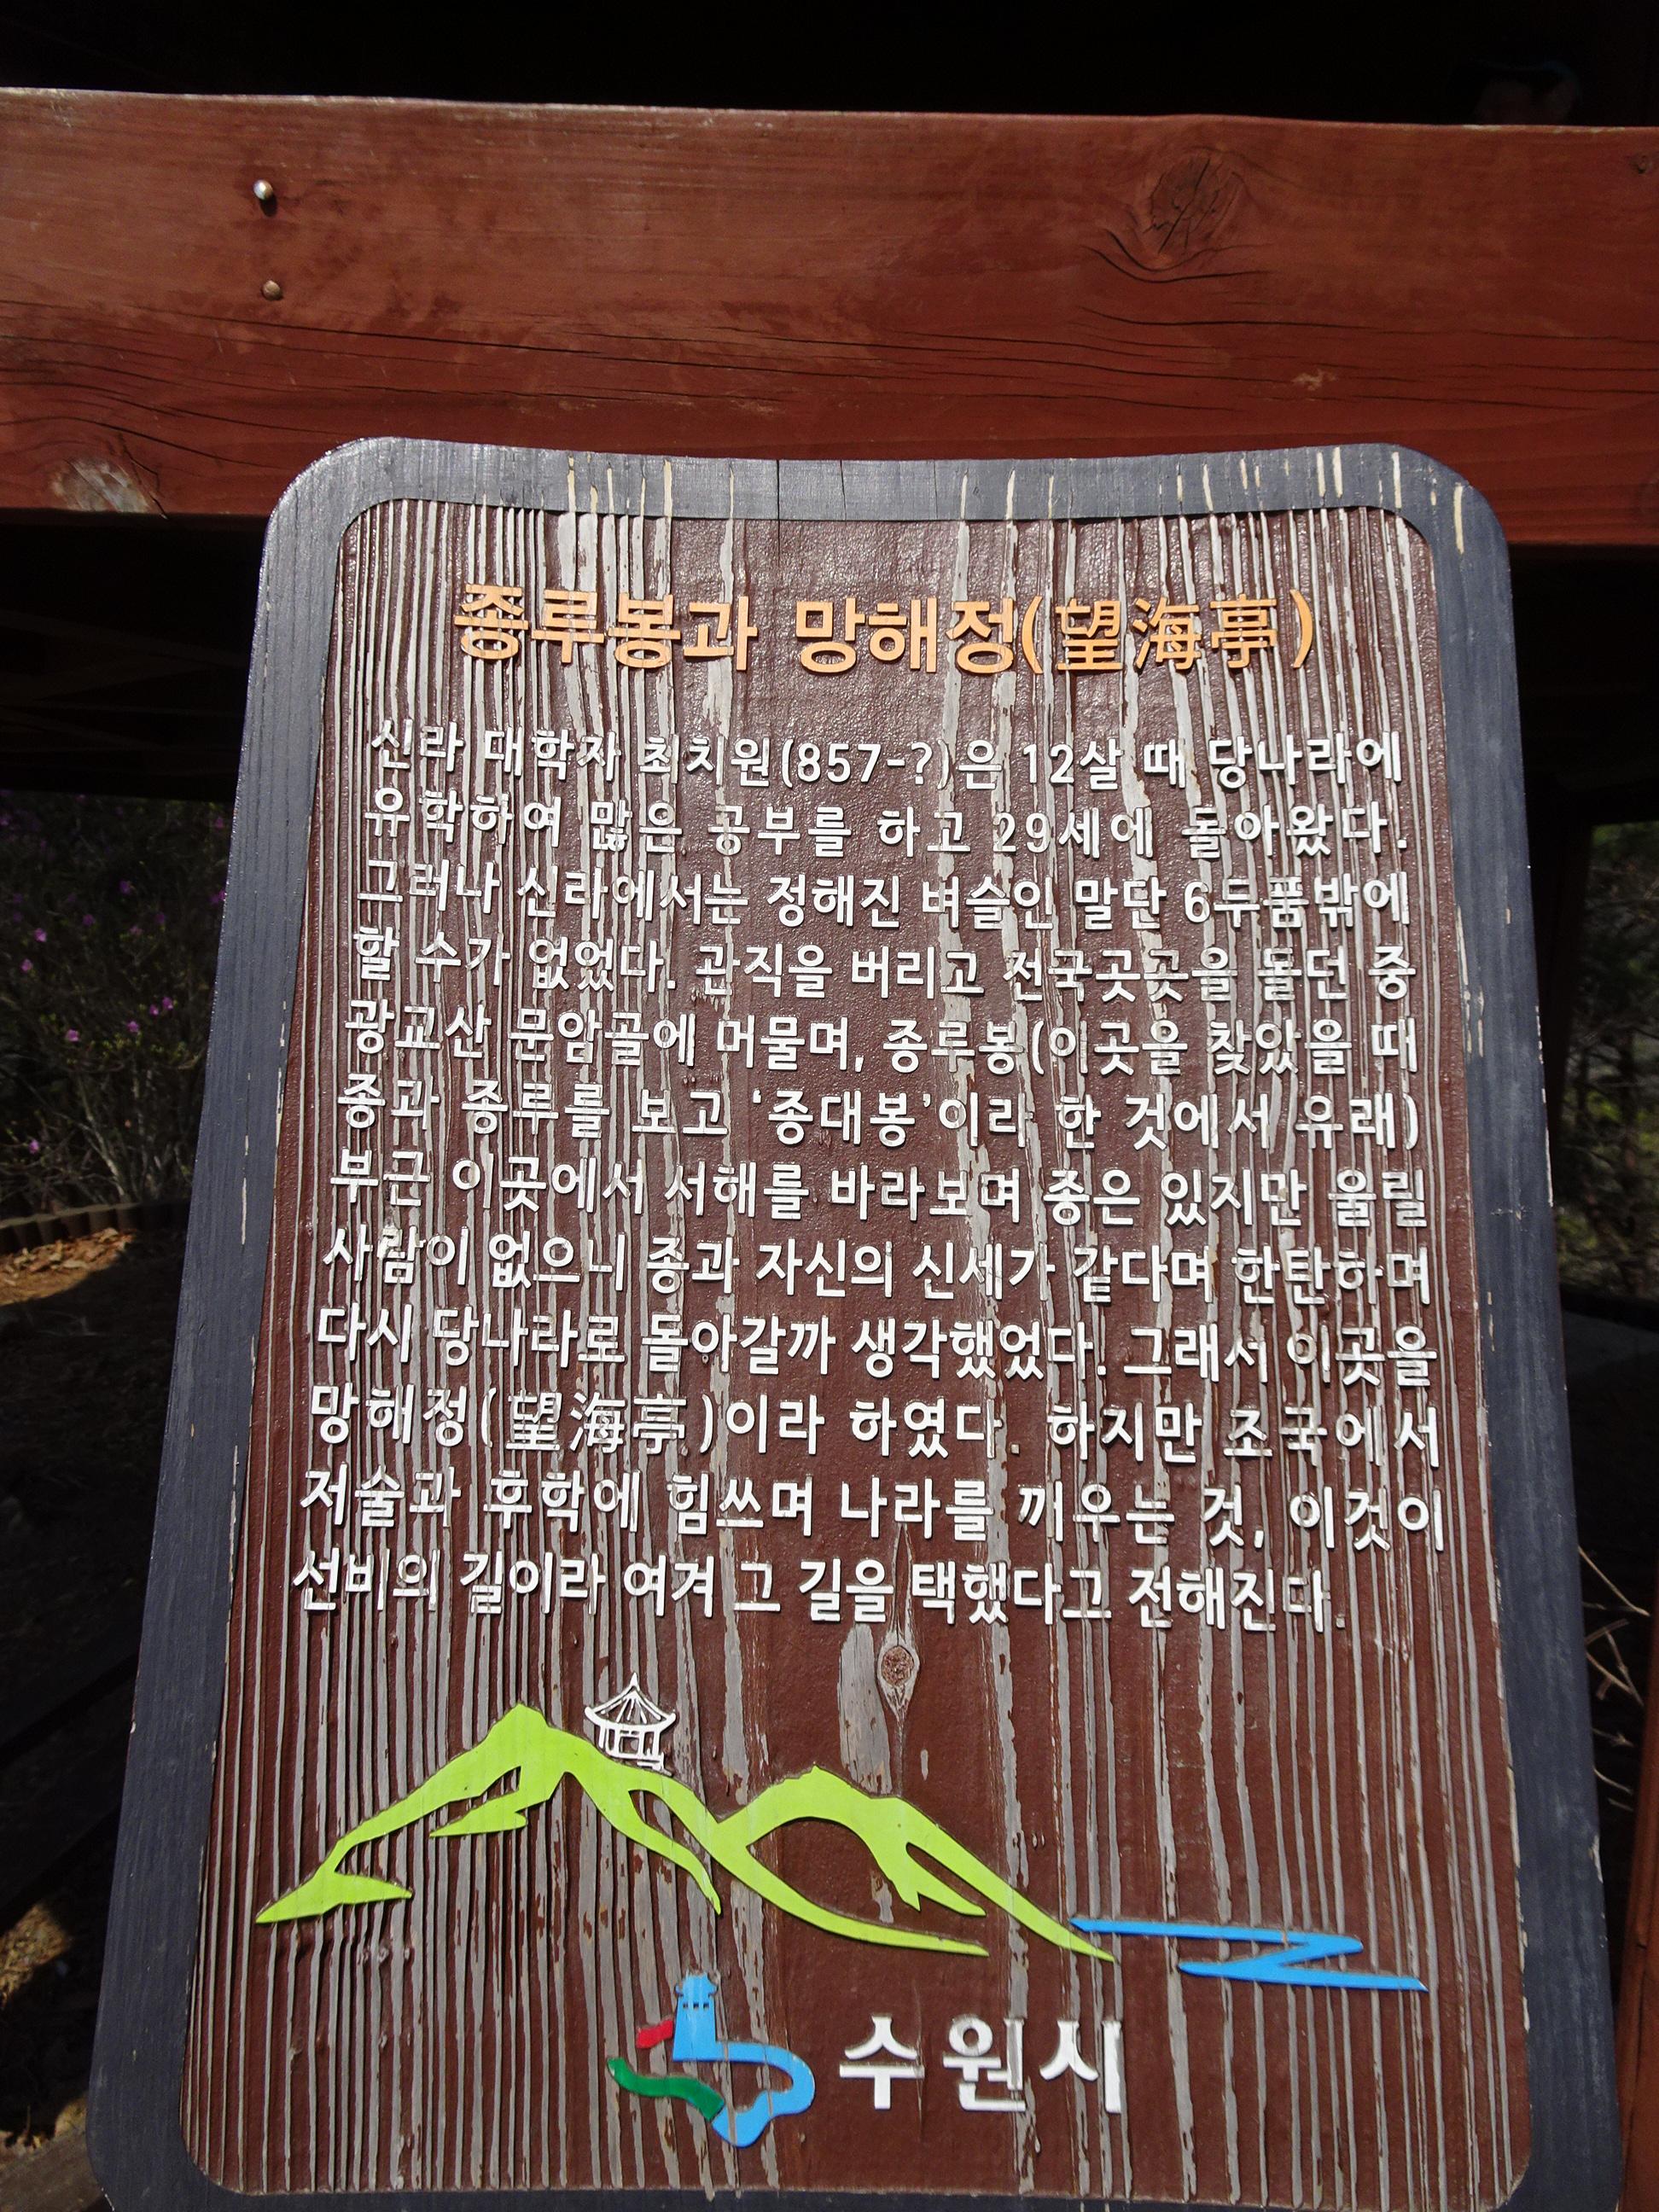 종루봉과 망해정(望海亭)
신라 대학자 최치원(857-?)은 12살 때 당나라에
유학하여 많은 공부를 하고 29세에 돌아왔다.
그러나 신라에서는 정해진 벼슬인 말단 6두품밖에
할 수가 없었다. 관직을 버리고 전국곳곳을 돌던 중
광교산 문암골에 머물며, 종루봉(이곳을 찾았을 때
종과 종루를 보고 '종대봉'이라 한 것에서 유래)
부근 이곳에서 서해를 바라보며 종은 있지만 울릴
사람이 없으니 종과 자신의 신세가 같다며 한탄하며
다시 당나라로 돌아갈까 생각했었다. 그래서 이곳을
망해정(望海亭)이라 하였다. 하지만 조국에서
저술과 후학에 힘쓰며 나라를 깨우는 것, 이것이
선비의 길이라 여겨 그 길을 택했다고 전해진다.
수원시